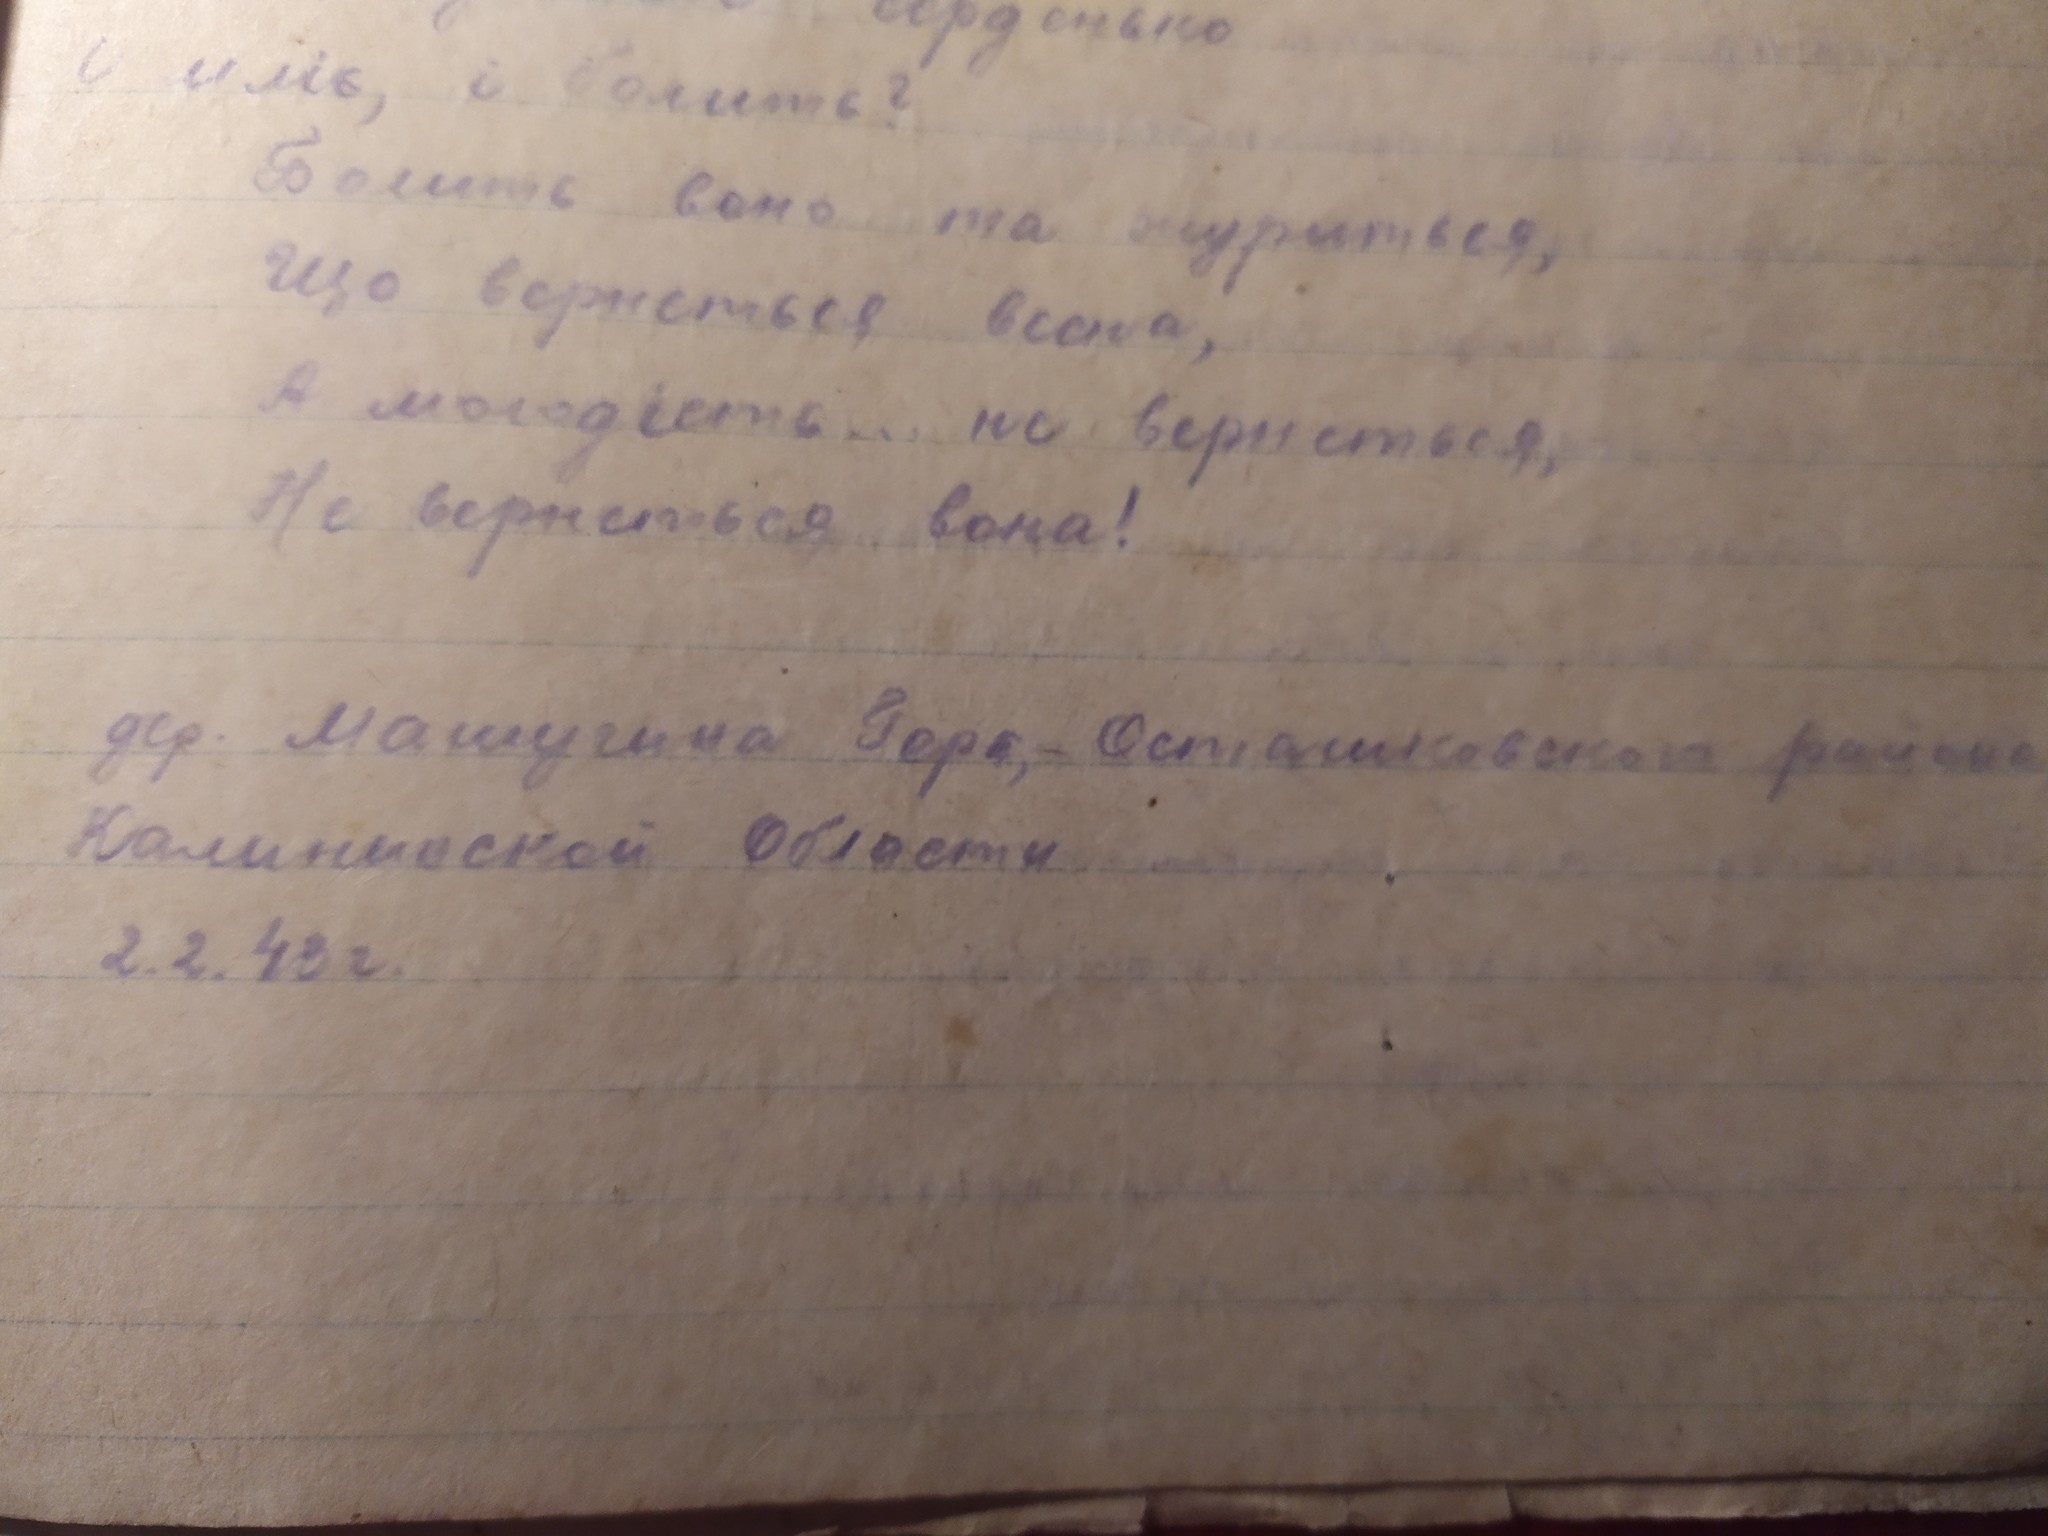 серденько
і мліє, і болить?
Болить воно та журиться,
Що вернеться весна,
А молодість... не вернеться,
Не вернеться вона!
дер. Машугина Гора,- Осташковского района
Калининской Области
2.2.43 г.